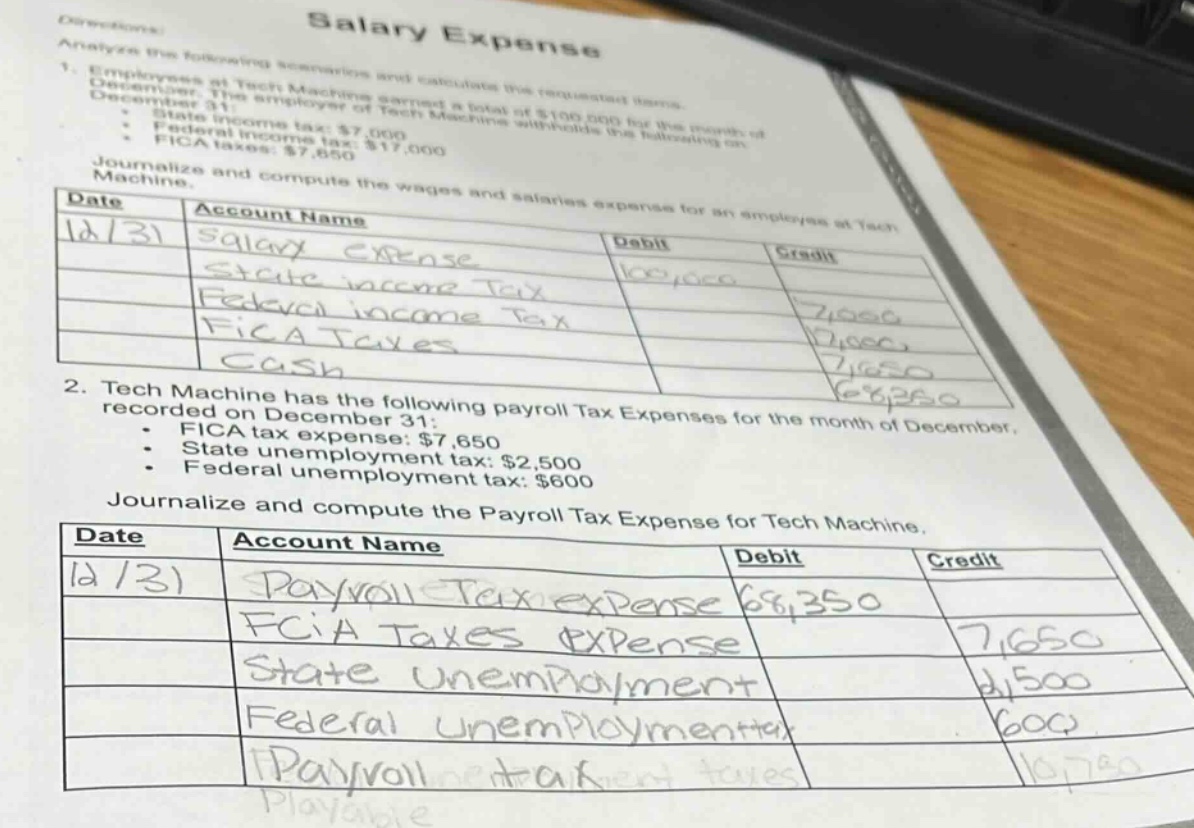 Salary Expense
Directions:
Analyze the following scenarios and calculate the requested items.
1. Employees at Tech Machine earned a total of $100,000 for the month of
December. The employer of Tech Machine withholds the following on
December 31:
• State income tax: $7,000
• Federal income tax: $17,000
• FICA taxes: $7,650
Journalize and compute the wages and salaries expense for an employee at Tech
Machine.
Date Account Name Debit Credit
12/31 Salary expense 100,000
State income Tax 7,000
Federal income Tax 17,000
FiCA Taxes 7,650
Cash 68,350
2. Tech Machine has the following payroll Tax Expenses for the month of December,
recorded on December 31:
• FICA tax expense: $7,650
• State unemployment tax: $2,500
• Federal unemployment tax: $600
Journalize and compute the Payroll Tax Expense for Tech Machine.
Date Account Name Debit Credit
12/31 Payroll Tax expense 68,350
FCiA Taxes expense 7,650
State Unemployment 2,500
Federal Unemployment tax 600
Payroll taxes 10,750
Playable